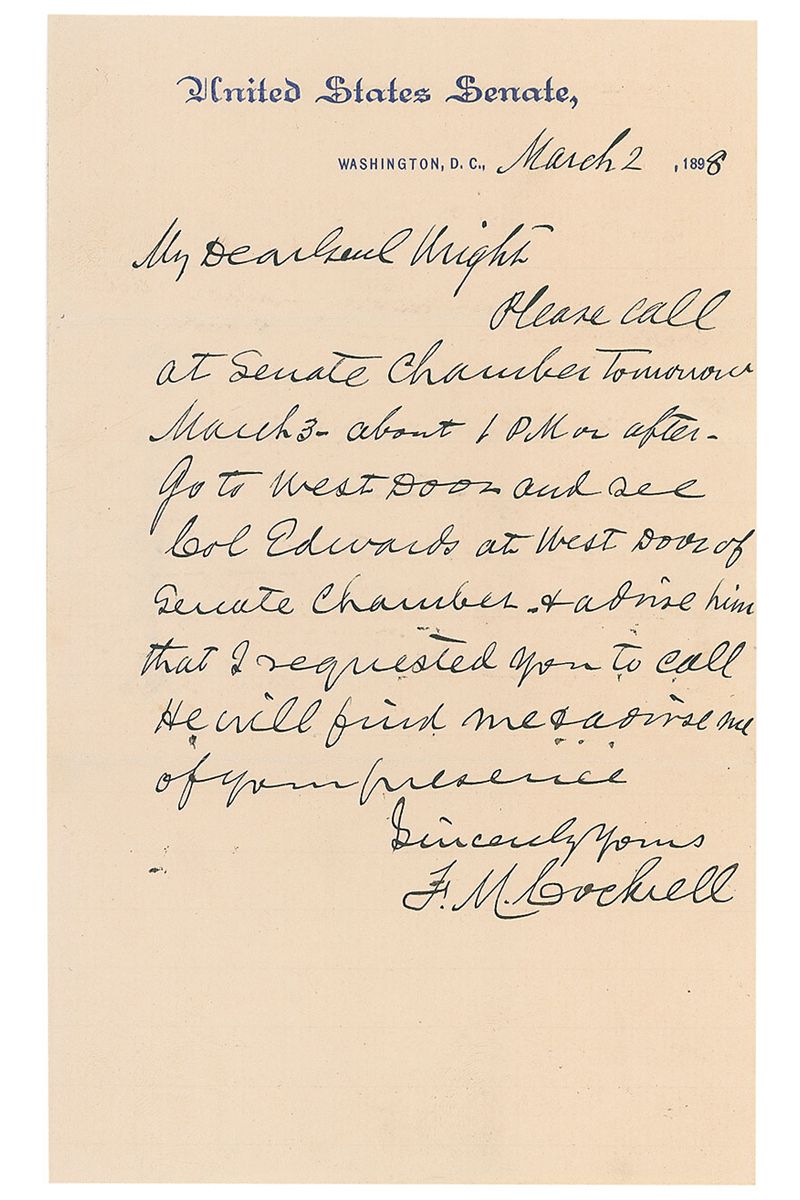 United States Senate,
WASHINGTON, D. C., March 2, 1898
My Dear Genl Wright
Please call
at Senate Chamber tomorrow
March 3 - about 1 PM or after -
Go to West Door and see
Col Edwards at West Door of
Senate Chamber - & advise him
that I requested you to call
He will find me & advise me
of your presence
Sincerely Yours
F. M. Cockrell